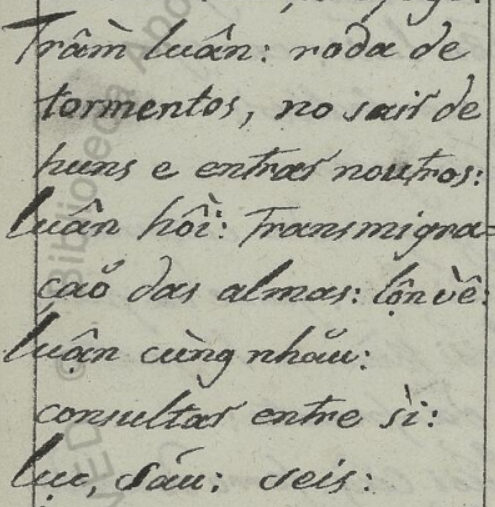 Trâm̀ luân: roda de
tormentos, no sair de
huns e entrar noutros:
luân hôì: Transmigra=
caõ das almas: lộn vê:
luận cùng nhău:
consultar entre sì:
luc, sáu: seis: